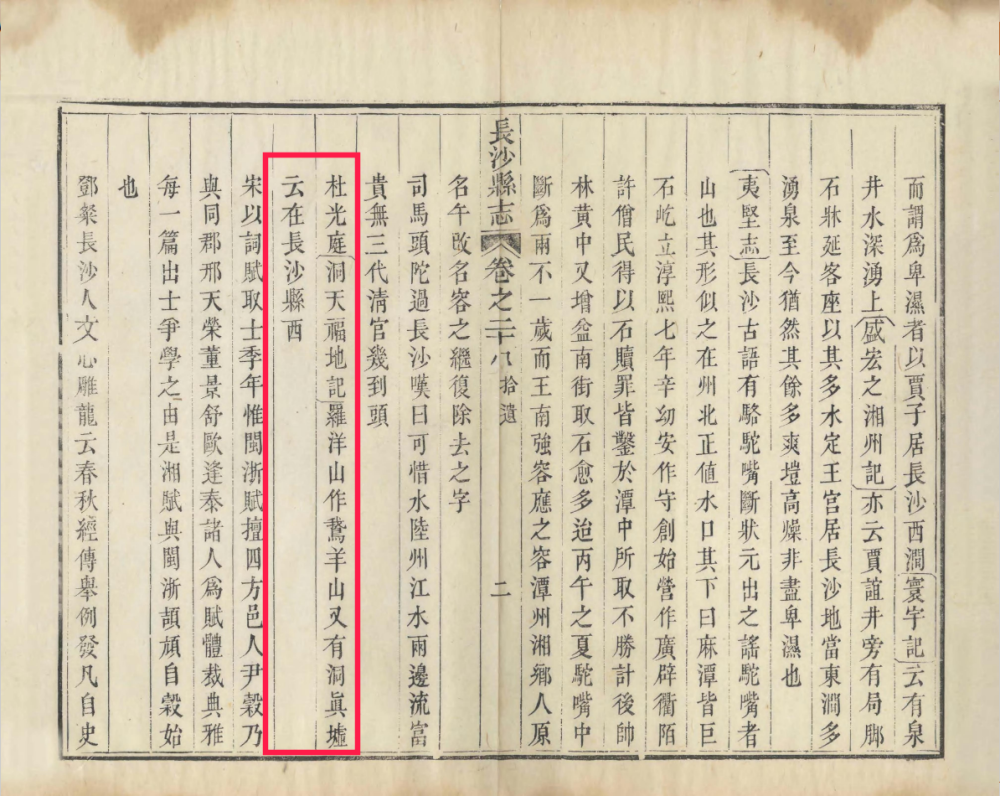 而謂爲卑濕者以賈子居長沙西澗寰宇記云有泉
井水深湧上盛宏之湘州記亦云賈誼井旁有局脚
石牀延客座以其多水定王宫居長沙地當東澗多
湧泉至今猶然其餘多爽塏高燥非盡卑濕也
夷堅志長沙古語有駱駝嘴斷狀元出之謠駝嘴者
山也其形似之在州北正值水口其下曰麻潭皆巨
石屹立淳熙七年辛幼安作守創始營作廣辟衢陌
許僧民得以石贖罪皆鑿於潭中所取不勝計後帥
林黄中又增盆南街取石愈多迨丙午之夏駝嘴中
斷爲兩不一歲而王南強容應之容潭州湘鄉人原
長沙縣志 卷之二十八 拾遺 二
名午改名容之繼復除去之字
司馬頭陀過長沙嘆曰可惜水陸州江水兩邊流富
貴無三代清官幾到頭
杜光庭洞天福地記羅洋山作鵞羊山又有洞眞墟
云在長沙縣西
宋以詞賦取士季年惟閩浙賦擅四方邑人尹穀乃
與同郡邢天榮董景舒歐逢泰諸人爲賦體裁典雅
每一篇出士爭學之由是湘賦與閩浙頡頏自穀始
也
鄧粲長沙人文心雕龍云春秋經傳舉例發凡自史